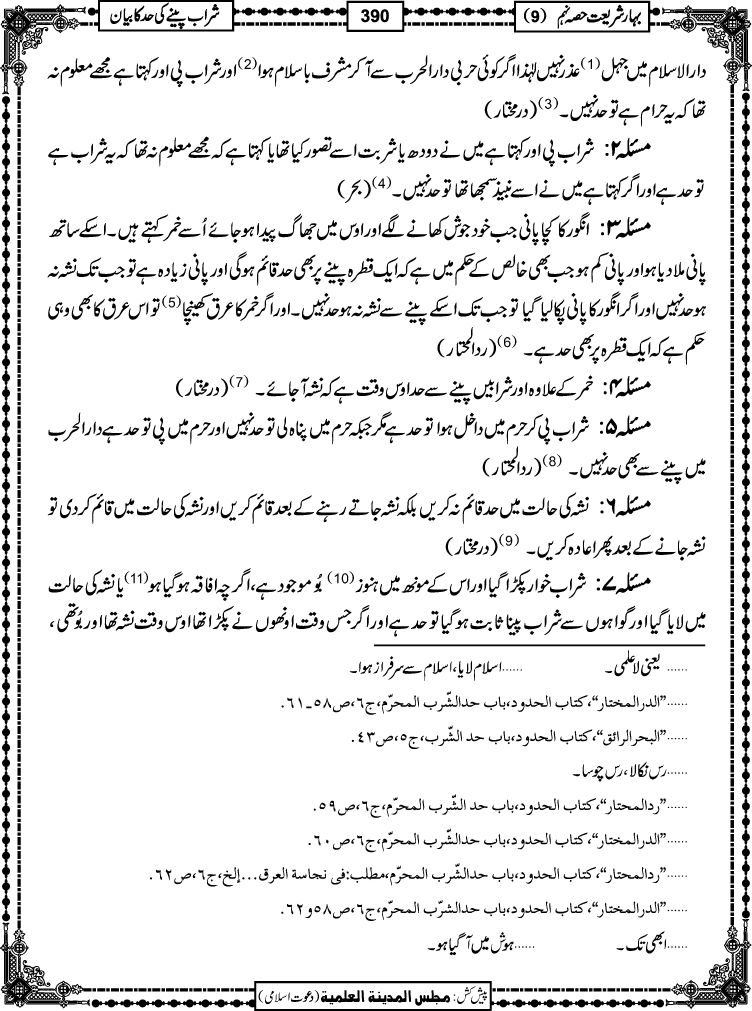 بہار شریعت حصہ نہم (9)
390
شراب پینے کی حد کا بیان
دارالاسلام میں جہل (1) عذر نہیں لہٰذا اگر کوئی حربی دارالحرب سے آکر مشرف باسلام ہوا (2) اور شراب پی اور کہتا ہے مجھے معلوم نہ
تھا کہ یہ حرام ہے تو حد نہیں۔ (3) (درمختار)
مسئلہ ۲: شراب پی اور کہتا ہے میں نے دودھ یا شربت اسے تصور کیا تھا یا کہتا ہے کہ مجھے معلوم نہ تھا کہ یہ شراب ہے
تو حد ہے اور اگر کہتا ہے میں نے اسے نبیذ سمجھا تھا تو حد نہیں۔ (4) (بحر)
مسئلہ ۳: انگور کا کچا پانی جب خود جوش کھانے لگے اور اوس میں جھاگ پیدا ہو جائے اُسے خمر کہتے ہیں۔ اسکے ساتھ
پانی ملا دیا ہو اور پانی کم ہو جب بھی خالص کے حکم میں ہے کہ ایک قطرہ پینے پر بھی حد قائم ہوگی اور پانی زیادہ ہے تو جب تک نشہ نہ
ہو حد نہیں اور اگر انگور کا پانی پکا لیا گیا تو جب تک اسکے پینے سے نشہ نہ ہو حد نہیں۔ اور اگر خمر کا عرق کھینچا (5) تو اس عرق کا بھی وہی
حکم ہے کہ ایک قطرہ پر بھی حد ہے۔ (6) (ردالمحتار)
مسئلہ ۴: خمر کے علاوہ اور شرابیں پینے سے حد اوس وقت ہے کہ نشہ آ جائے۔ (7) (درمختار)
مسئلہ ۵: شراب پی کر حرم میں داخل ہوا تو حد ہے مگر جبکہ حرم میں پناہ لی تو حد نہیں اور حرم میں پی تو حد ہے دارالحرب
میں پینے سے بھی حد نہیں۔ (8) (ردالمحتار)
مسئلہ ۶: نشہ کی حالت میں حد قائم نہ کریں بلکہ نشہ جاتے رہنے کے بعد قائم کریں اور نشہ کی حالت میں قائم کر دی تو
نشہ جانے کے بعد پھر اعادہ کریں۔ (9) (درمختار)
مسئلہ ۷: شراب خوار پکڑا گیا اور اس کے مونھ میں ہنوز (10) بُو موجود ہے، اگرچہ افاقہ ہو گیا ہو (11) یا نشہ کی حالت
میں لایا گیا اور گواہوں سے شراب پینا ثابت ہو گیا تو حد ہے اور اگر جس وقت اونھوں نے پکڑا تھا اوس وقت نشہ تھا اور بُو تھی،
...... یعنی لاعلمی۔ ......اسلام لایا، اسلام سے سرفراز ہوا۔
......"الدرالمختار"، کتاب الحدود، باب حدالشّرب المحرّم، ج٦، ص٥٨ـ٦١.
......"البحرالرائق"، کتاب الحدود، باب حد الشّرب، ج٥، ص٤٣.
......رس نکالا، رس چوسا۔
......"ردالمحتار"، کتاب الحدود، باب حد الشّرب المحرّم، ج٦، ص٥٩.
......"الدرالمختار"، کتاب الحدود، باب حدالشّرب المحرّم، ج٦، ص٦٠.
......"ردالمحتار"، کتاب الحدود، باب حدالشّرب المحرّم، مطلب: فی نجاسة العرق... إلخ، ج٦، ص٦٢.
......"الدرالمختار"، کتاب الحدود، باب حدالشرّب المحرّم، ج٦، ص٥٨ و٦٢.
......ابھی تک۔ ......ہوش میں آ گیا ہو۔
پیش کش: مجلس المدینة العلمیة (دعوت اسلامی)